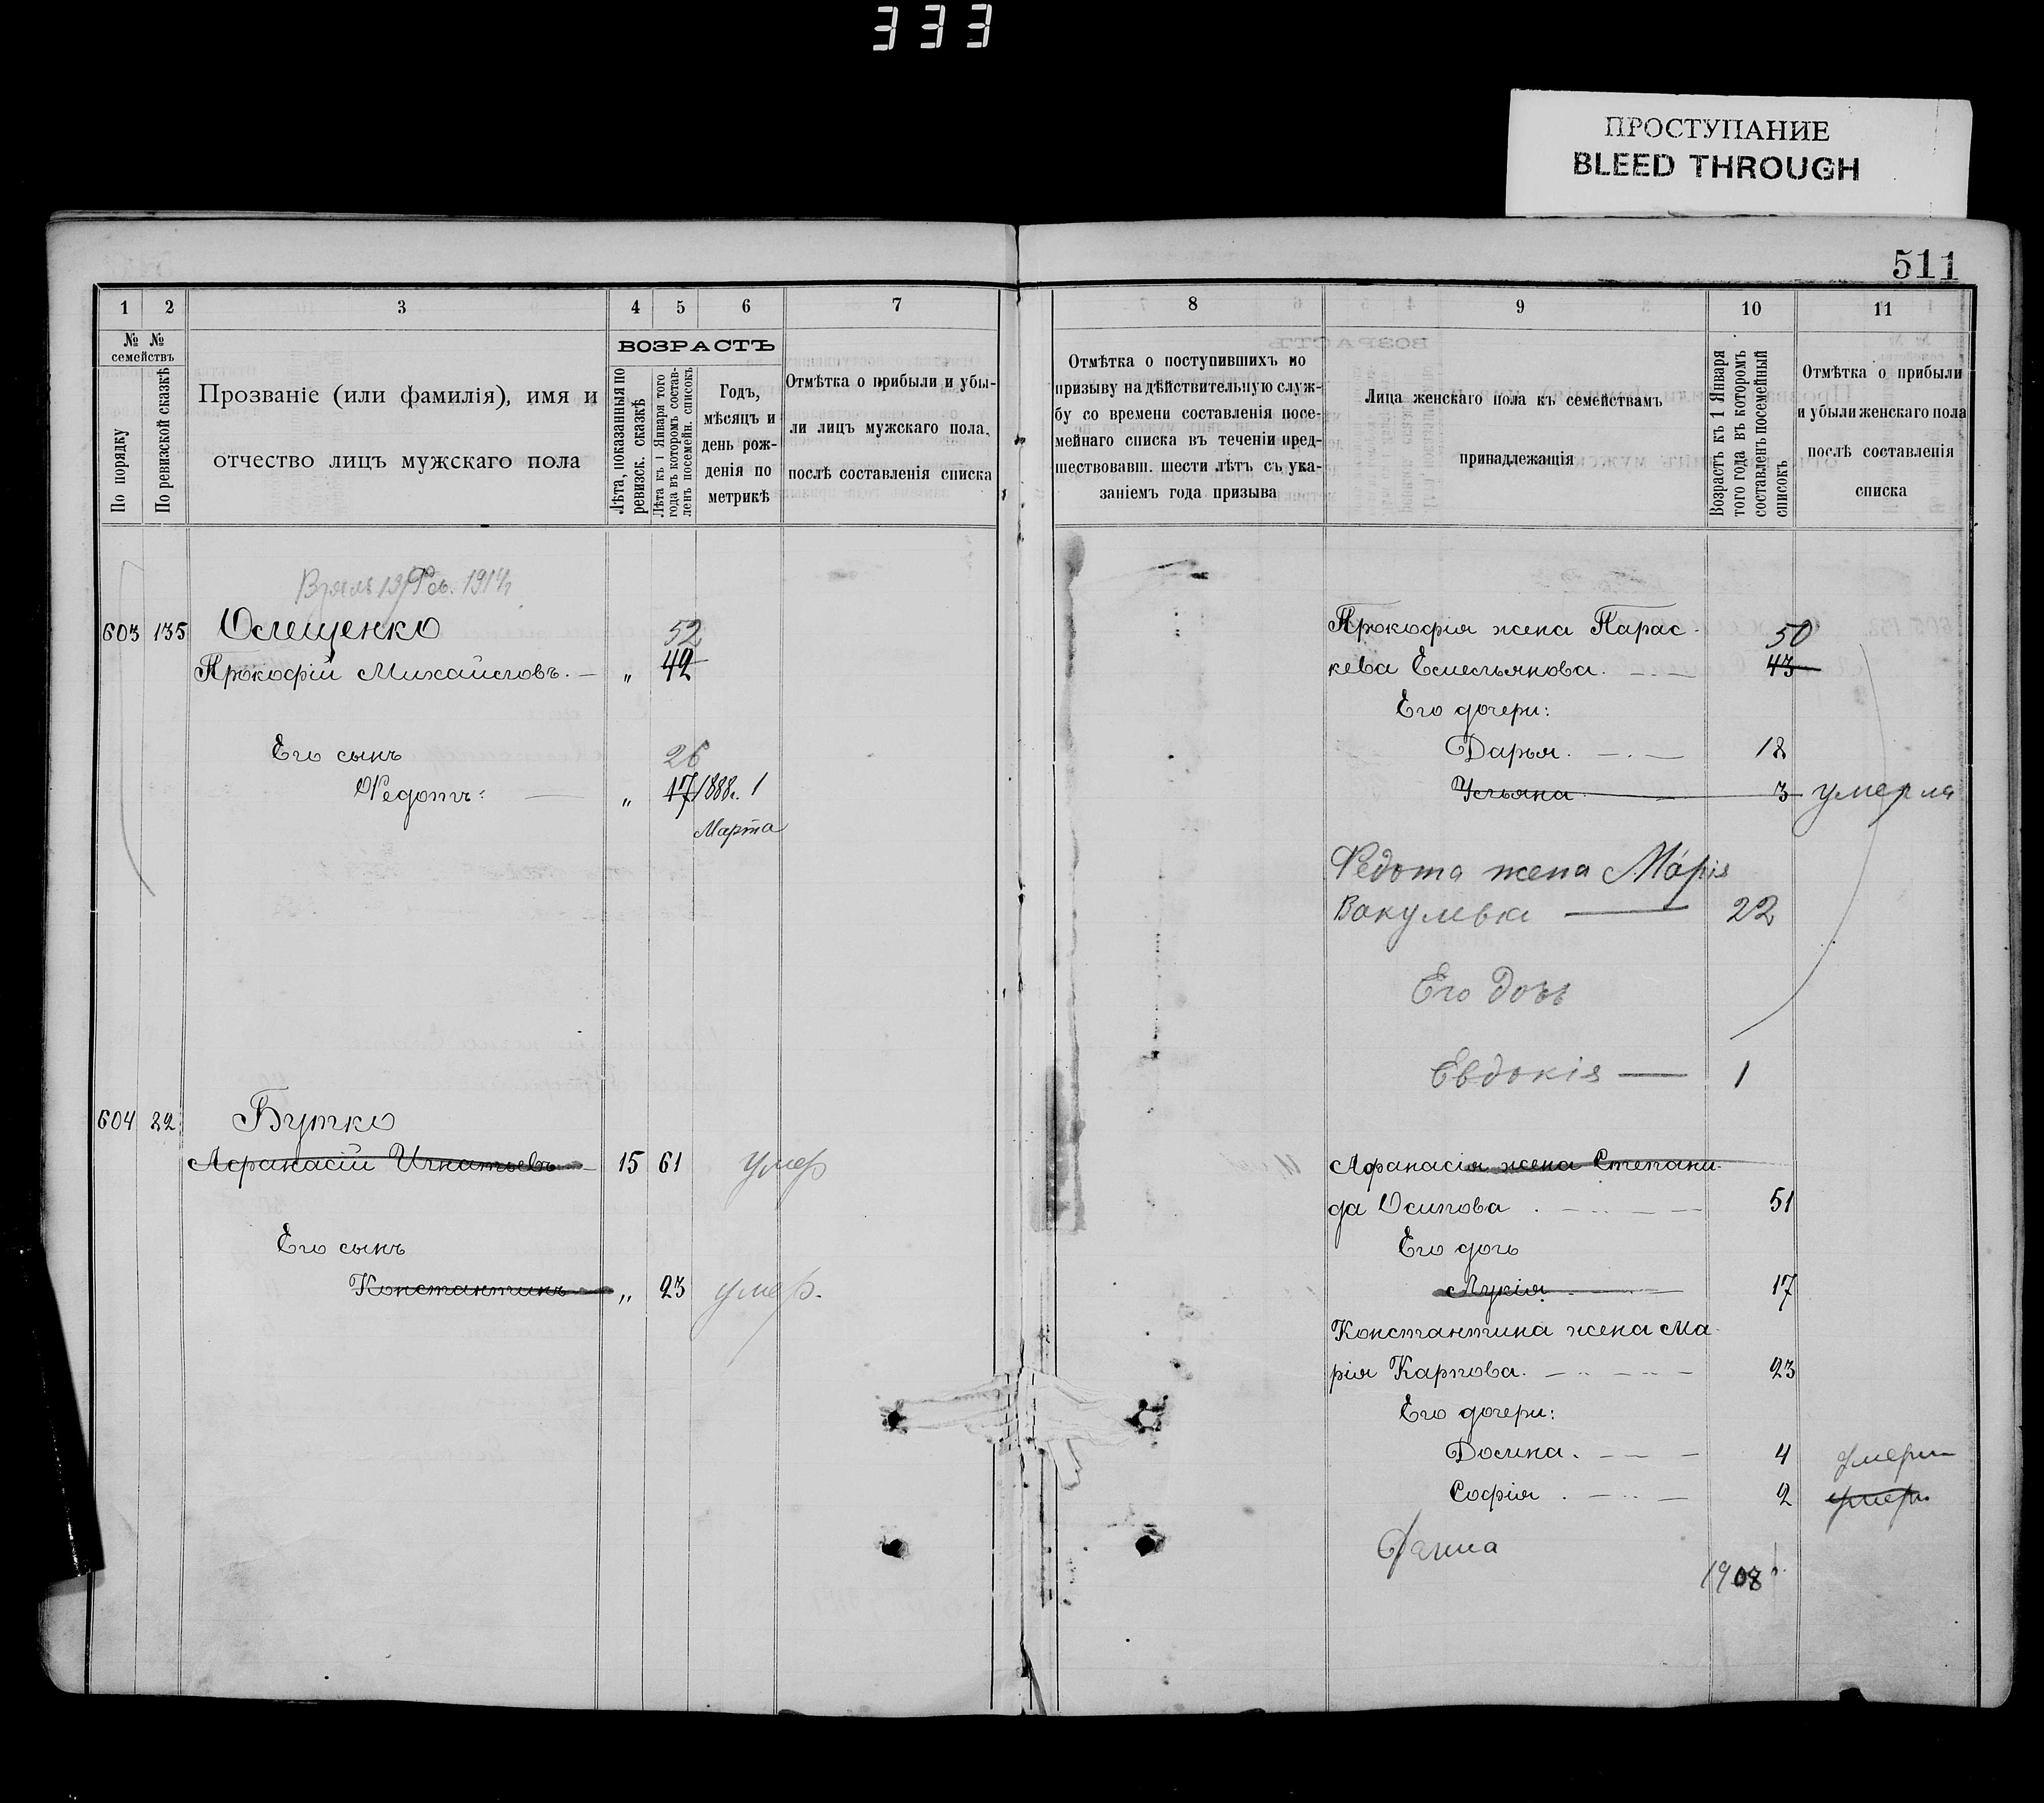 333
ПРОСТУПАНИЕ
BLEED THROUGH
511
1 2 3 4 5 6 7
№ № семействъ
По порядку
По ревизской сказкѣ
Прозваніе (или фамилія), имя и
отчество лицъ мужскаго пола
ВОЗРАСТЪ
Лѣта, показанныя по
ревизск. сказкѣ
Лѣта къ 1 Января того
года въ которомъ состав-
ленъ посемейн. списокъ
Годъ,
мѣсяцъ и
день рож-
денія по
метрикѣ
Отмѣтка о прибыли и убы-
ли лицъ мужскаго пола,
послѣ составленія списка
8 9 10 11
Отмѣтка о поступившихъ по
призыву на дѣйствительную служ-
бу со времени составленія посе-
мейнаго списка въ теченіи пред-
шествовавш. шести лѣтъ съ ука-
заніемъ года призыва
Лица женскаго пола къ семействамъ
принадлежащія
Возрастъ къ 1 Января
того года въ которомъ
составленъ посемейный
списокъ
Отмѣтка о прибыли
и убыли женскаго пола
послѣ составленія
списка
1914
603 135 Ослещенко 52
Прокофій Михайловъ. — " 42
Его сынъ 26
Ѳедотъ: — " 17 1888г. 1
Марта
604 22 Бутко
Афанасій Игнатьевъ — 15 61 умер
Его сынъ
Константинъ — " 23 умер.
Прокофія жена Парас- 50
кева Емельянова. 43
Его дочери:
Дарья. 18
Ульяна 3 умерла
Ѳедота жена Марія
Вакулева — 22
Его дочь
Евдокія — 1
Афанасія жена Степани-
да Осипова 51
Его дочь
Лукія. 17
Константина жена Ма-
рія Карпова. 23
Его дочери:
Домна. 4
Софія 2 умер.
1908